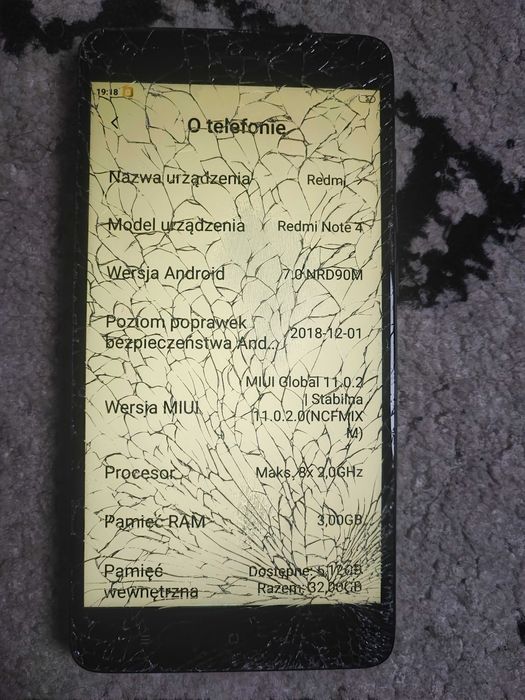 19:18
O telefonie
Nazwa urządzenia Redmi
Model urządzenia Redmi Note 4
Wersja Android 7.0 NRD90M
Poziom poprawek
bezpieczeństwa And... 2018-12-01
Wersja MIUI MIUI Global 11.0.2
| Stabilna
11.0.2.0(NCFMIX
M)
Procesor Maks. 8x 2,0GHz
Pamięć RAM 3,00GB
Pamięć
wewnętrzna Dostępne: 6,12GB
Razem: 32,00GB